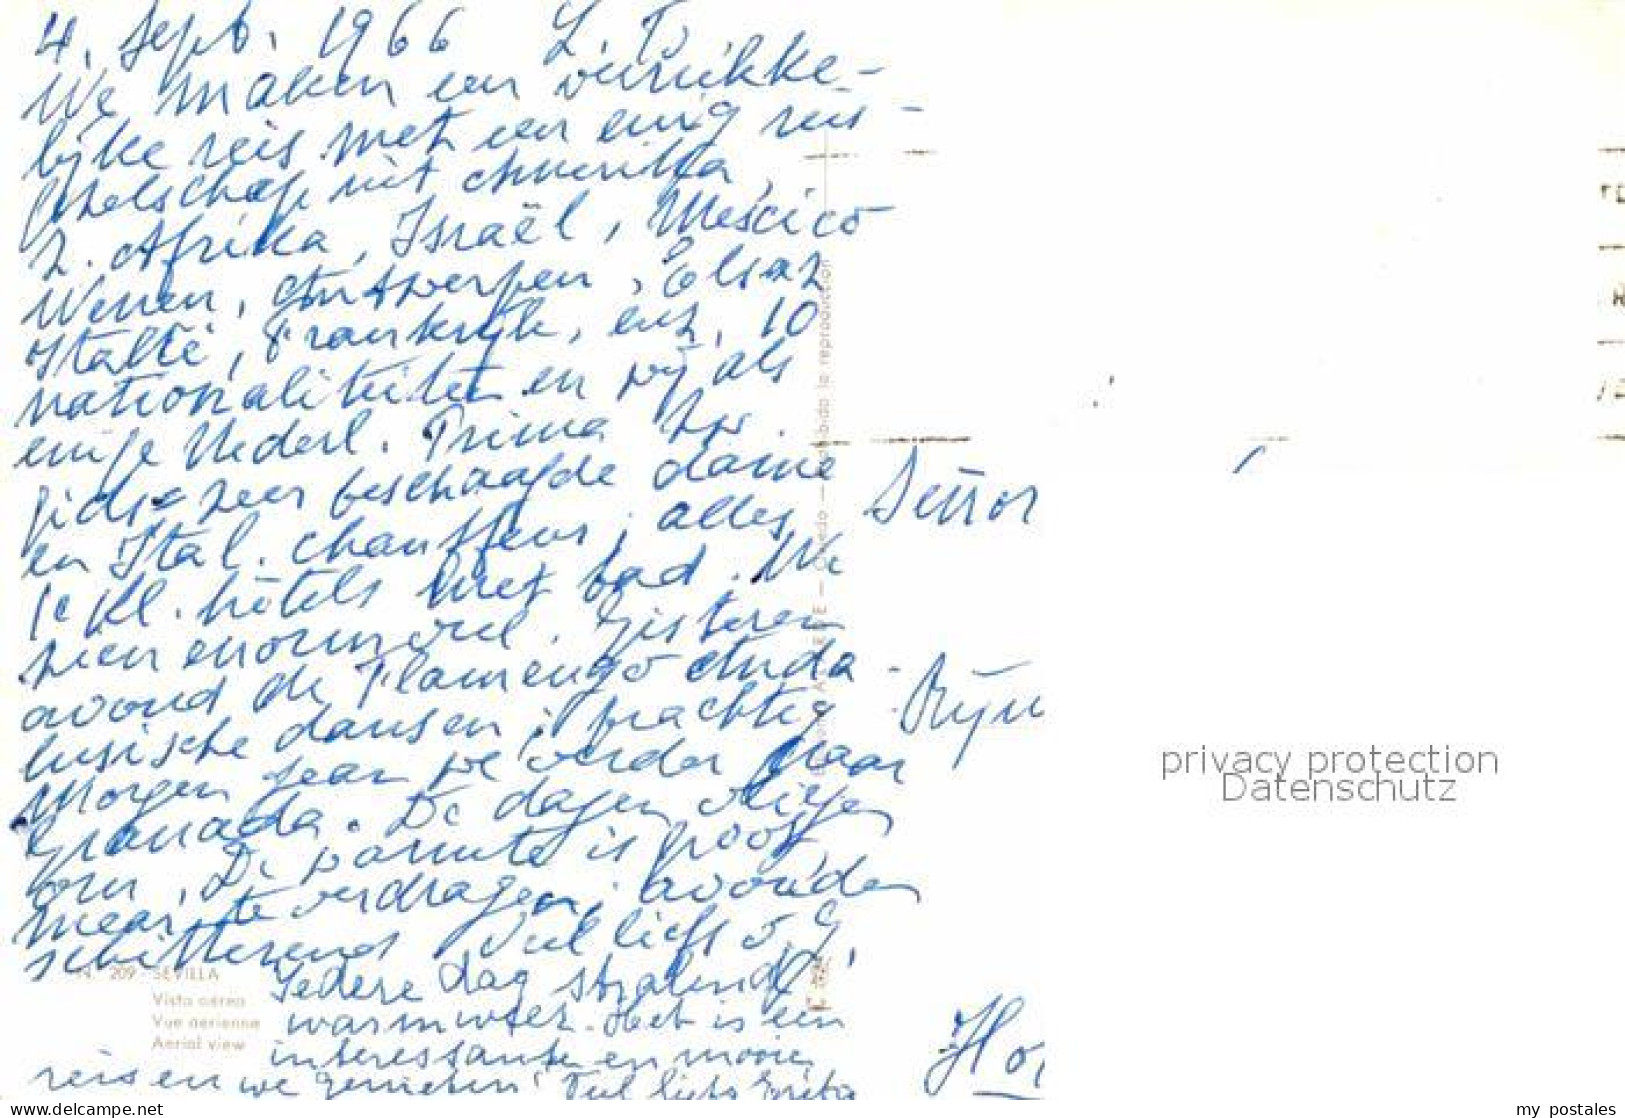 4. Sept. 1966 L. T.
We maken een verrukke-
lijke reis met een enig reis-
gezelschap uit Amerika,
Z. Afrika, Israël, Mexico
Wenen, Antwerpen, Elsaz
Italië, Frankrijk, enz, 10
nationaliteiten en wij als
enige Nederl. Prima
gids zeer beschaafde dame
en Ital. chauffeur, alles
1e kl. hôtels met bad. We
zien enorm veel. Gisteren
avond de Flamengo Anda-
lusische dansen, prachtig
Morgen gaan we verder naar
Granada. De dagen vliegen
om. De warmte is groot
maar te verdragen, avonden
schitterend. Veel liefs
Iedere dag stralend,
warm weer. Het is een
interessante en mooie
reis en we genieten! Veel liefs
Señor
Rijn
Ho
N. 209 - SEVILLA
Vista aérea
Vue aerienne
Aerial view
Prohibida la reproducción
privacy protection
Datenschutz
www.delcampe.net
my_postales